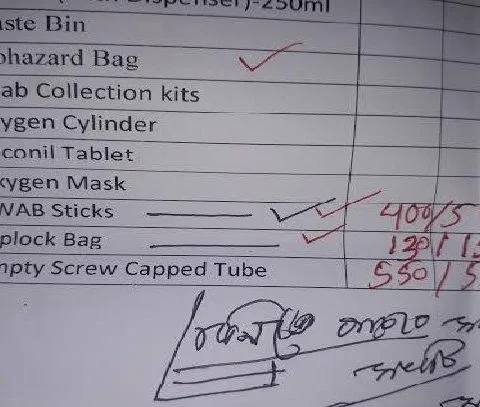 Dispenser)-250ml
aste Bin
ohazard Bag
ab Collection kits
ygen Cylinder
conil Tablet
xygen Mask
WAB Sticks 400/5
plock Bag 130/1
mpty Screw Capped Tube 550/5